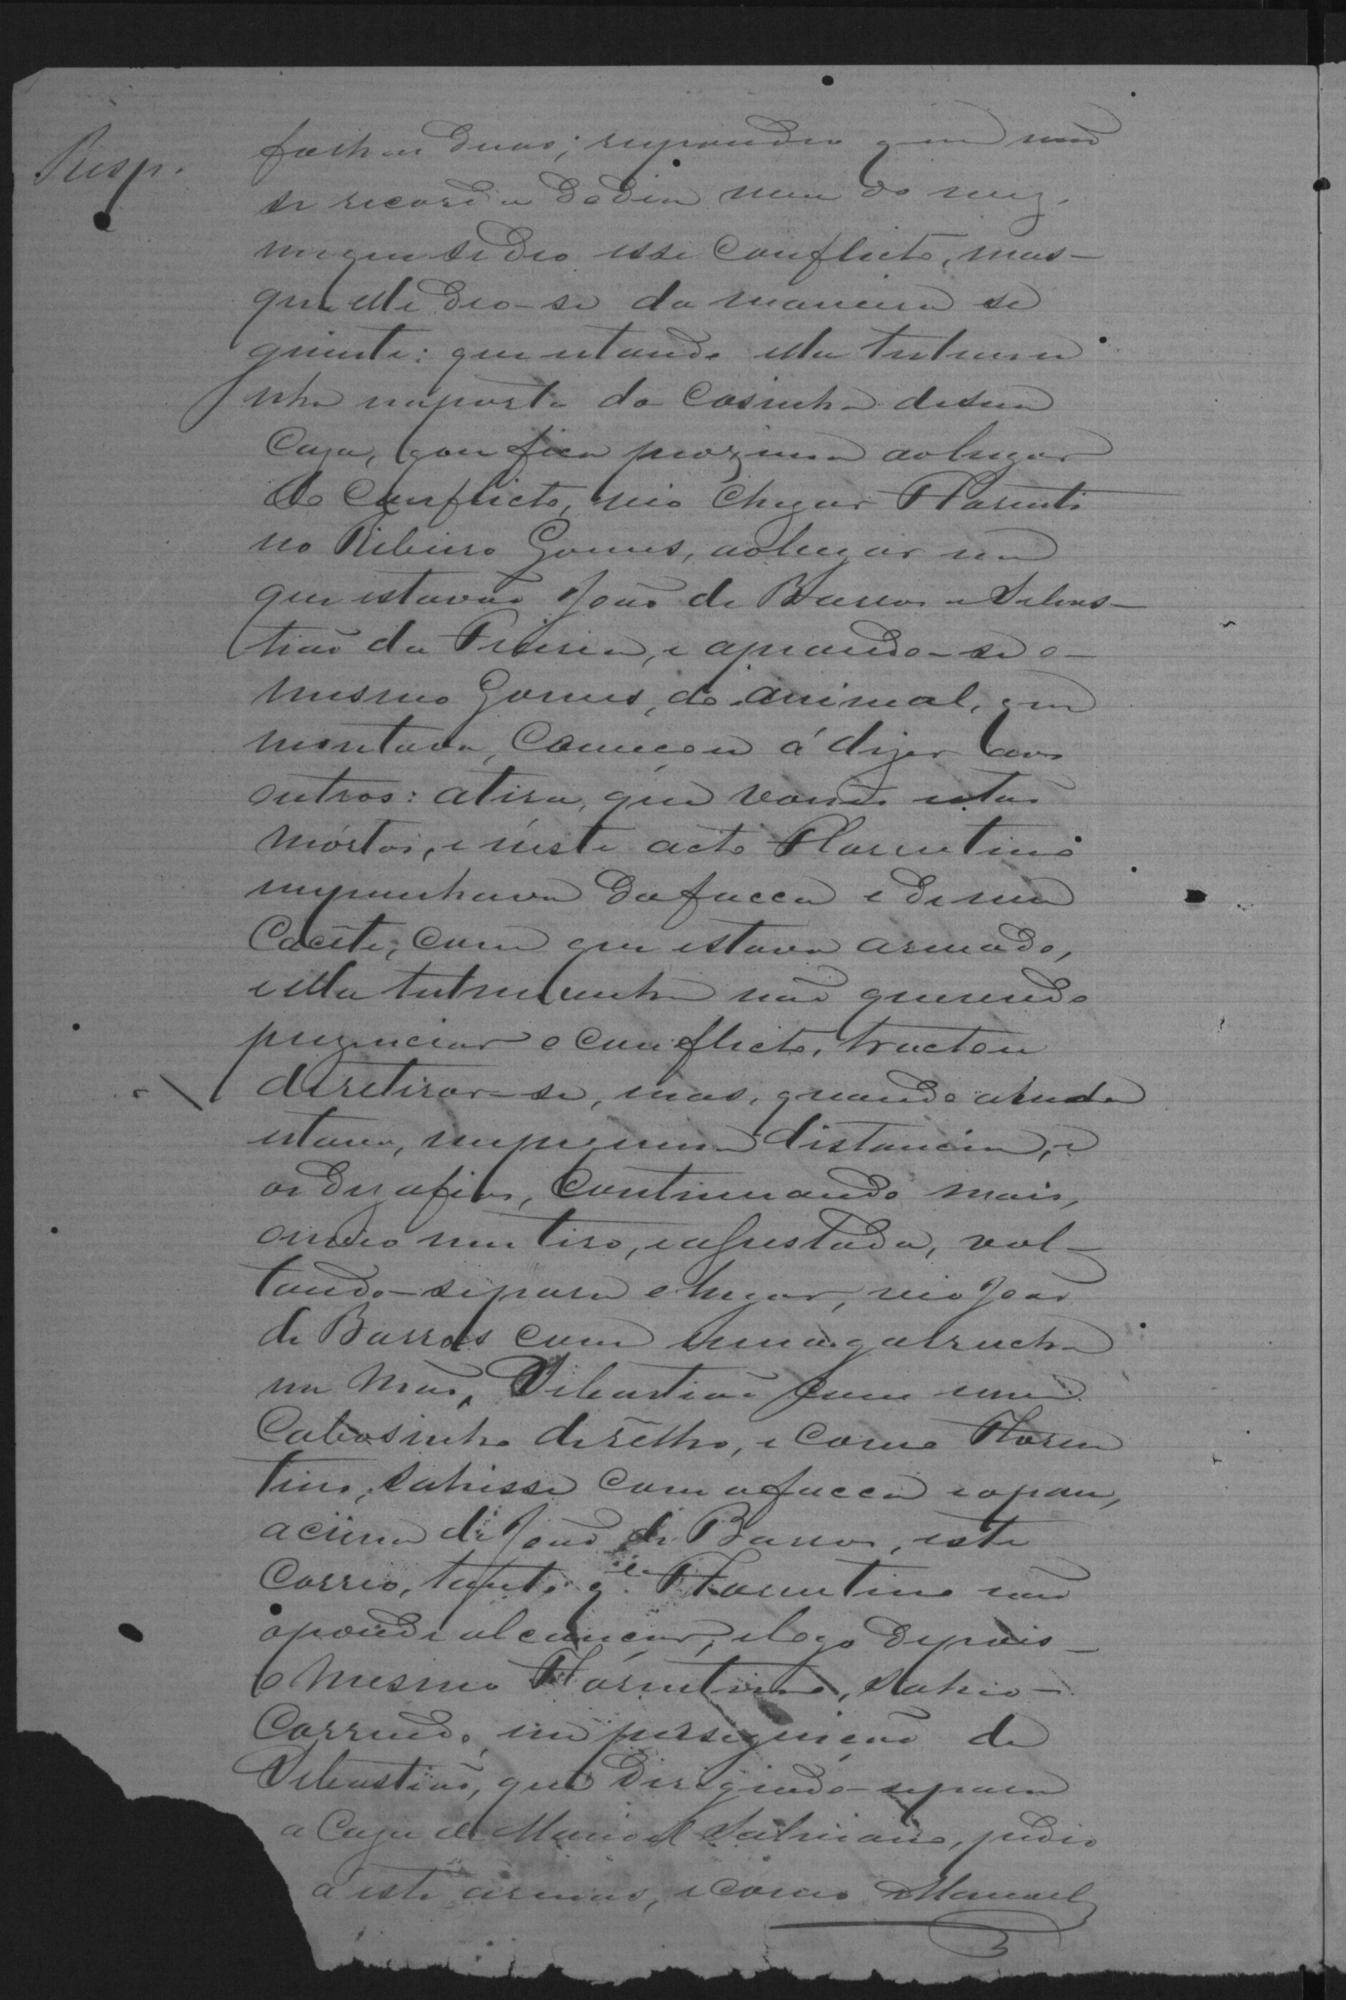 Resp.
folhas duas; respondeo que não
se recorda do dia nem do mez,
em que se deo esse conflicto, mas
que elle deo-se da maneira se
guinte: que estando ella testemu
nha na porta da cosinha de sua
caza, que fica proxima ao lugar
do conflicto, vio chegar Florenti
no Ribeiro Gomes, ao lugar em
que estavão João de Barros e Sebas-
tião da, e apeando-se o
mesmo Gomes, do animal, que
montava, começou á dizer aos
outros: atira, que vocês estão
mórtos, e n'este acto Florentino
empunhava da facca e de um
cacête, com que estava armado,
e ella testemunha não querendo
prezenciar o conflicto, tractou
de retirar-se, mas, quando ainda
estava, em pequena distancia, e
os dezafios, continuando mais,
ouvio um tiro, e assustada, vol-
tando-se para o lugar, vio João
de Barros com uma garrucha
na mão, Sebastião com um
cabosinho de rêlho, e como Floren
tino, sahisse com a facca e o pau,
acima de João de Barros, este
correo, tanto q.e Florentino não
o poude alcançar, e logo depois
o mesmo Florentino, sahio
correndo, em perseguição de
Sebastião, que dirigindo-se para
a caza de Manoel Salviano, pedio
á este armas, e como Manoel